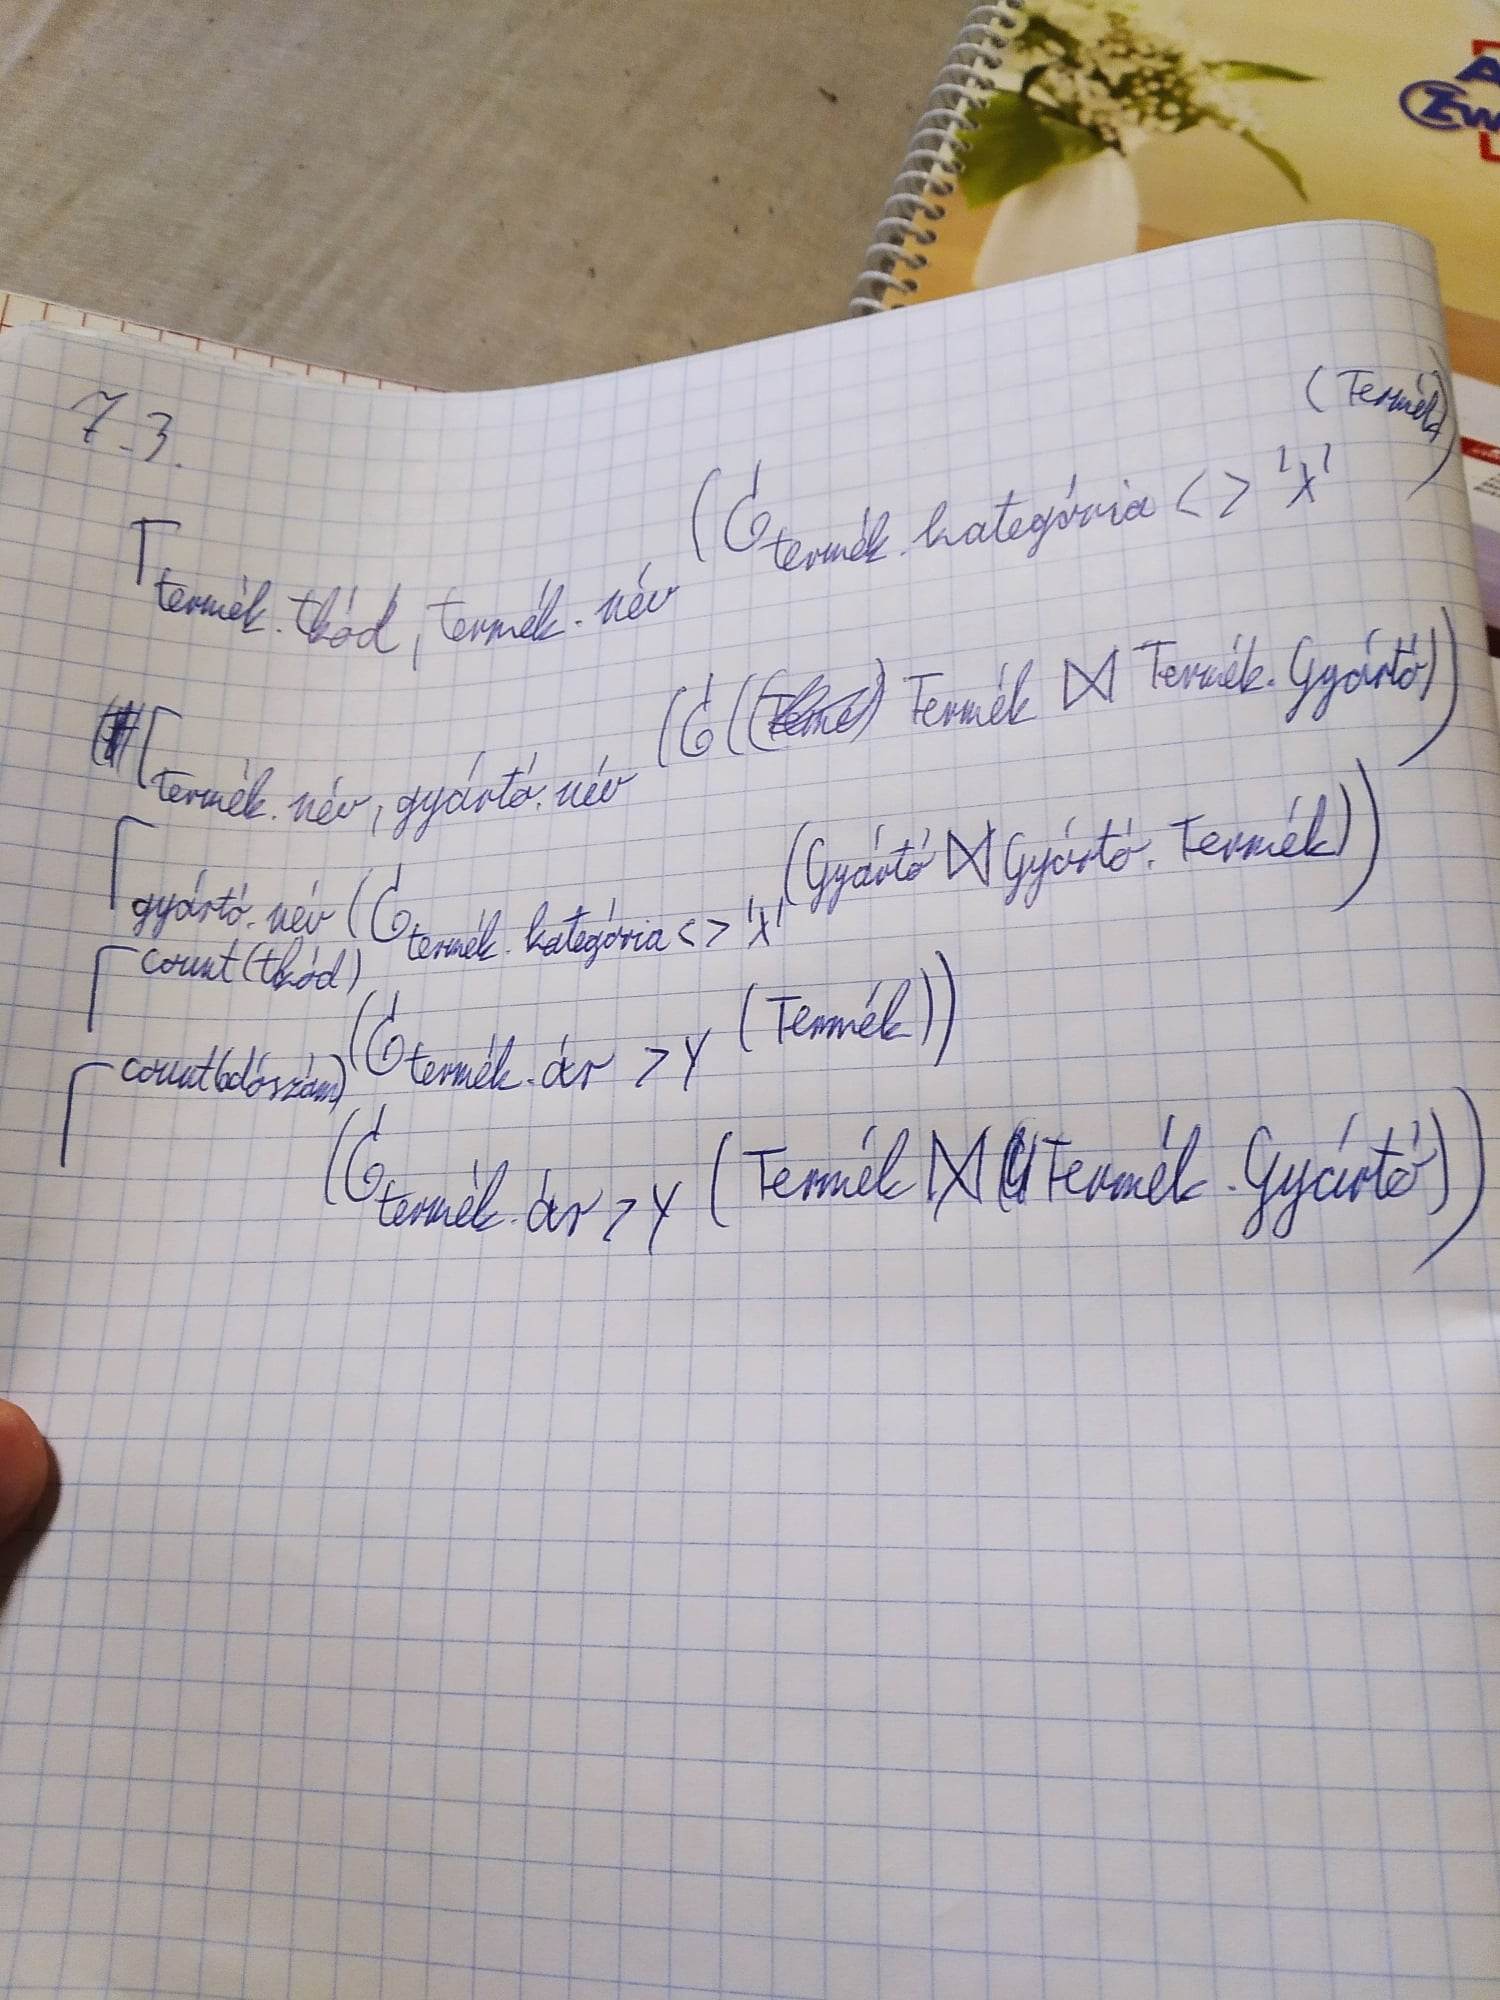 7.3.
Γ termék.tkód, termék.név (σ termék.kategória <> 'x' (Termék))
Γ termék.név, gyártó.név (σ (Termék ⋈ Termék.Gyártó))
Γ gyártó.név (σ termék.kategória <> 'x' (Gyártó ⋈ Gyártó.Termék))
Γ count(tkód) (σ termék.ár > y (Termék))
Γ count(adószám) (σ termék.ár > y (Termék ⋈ (Termék.Gyártó))